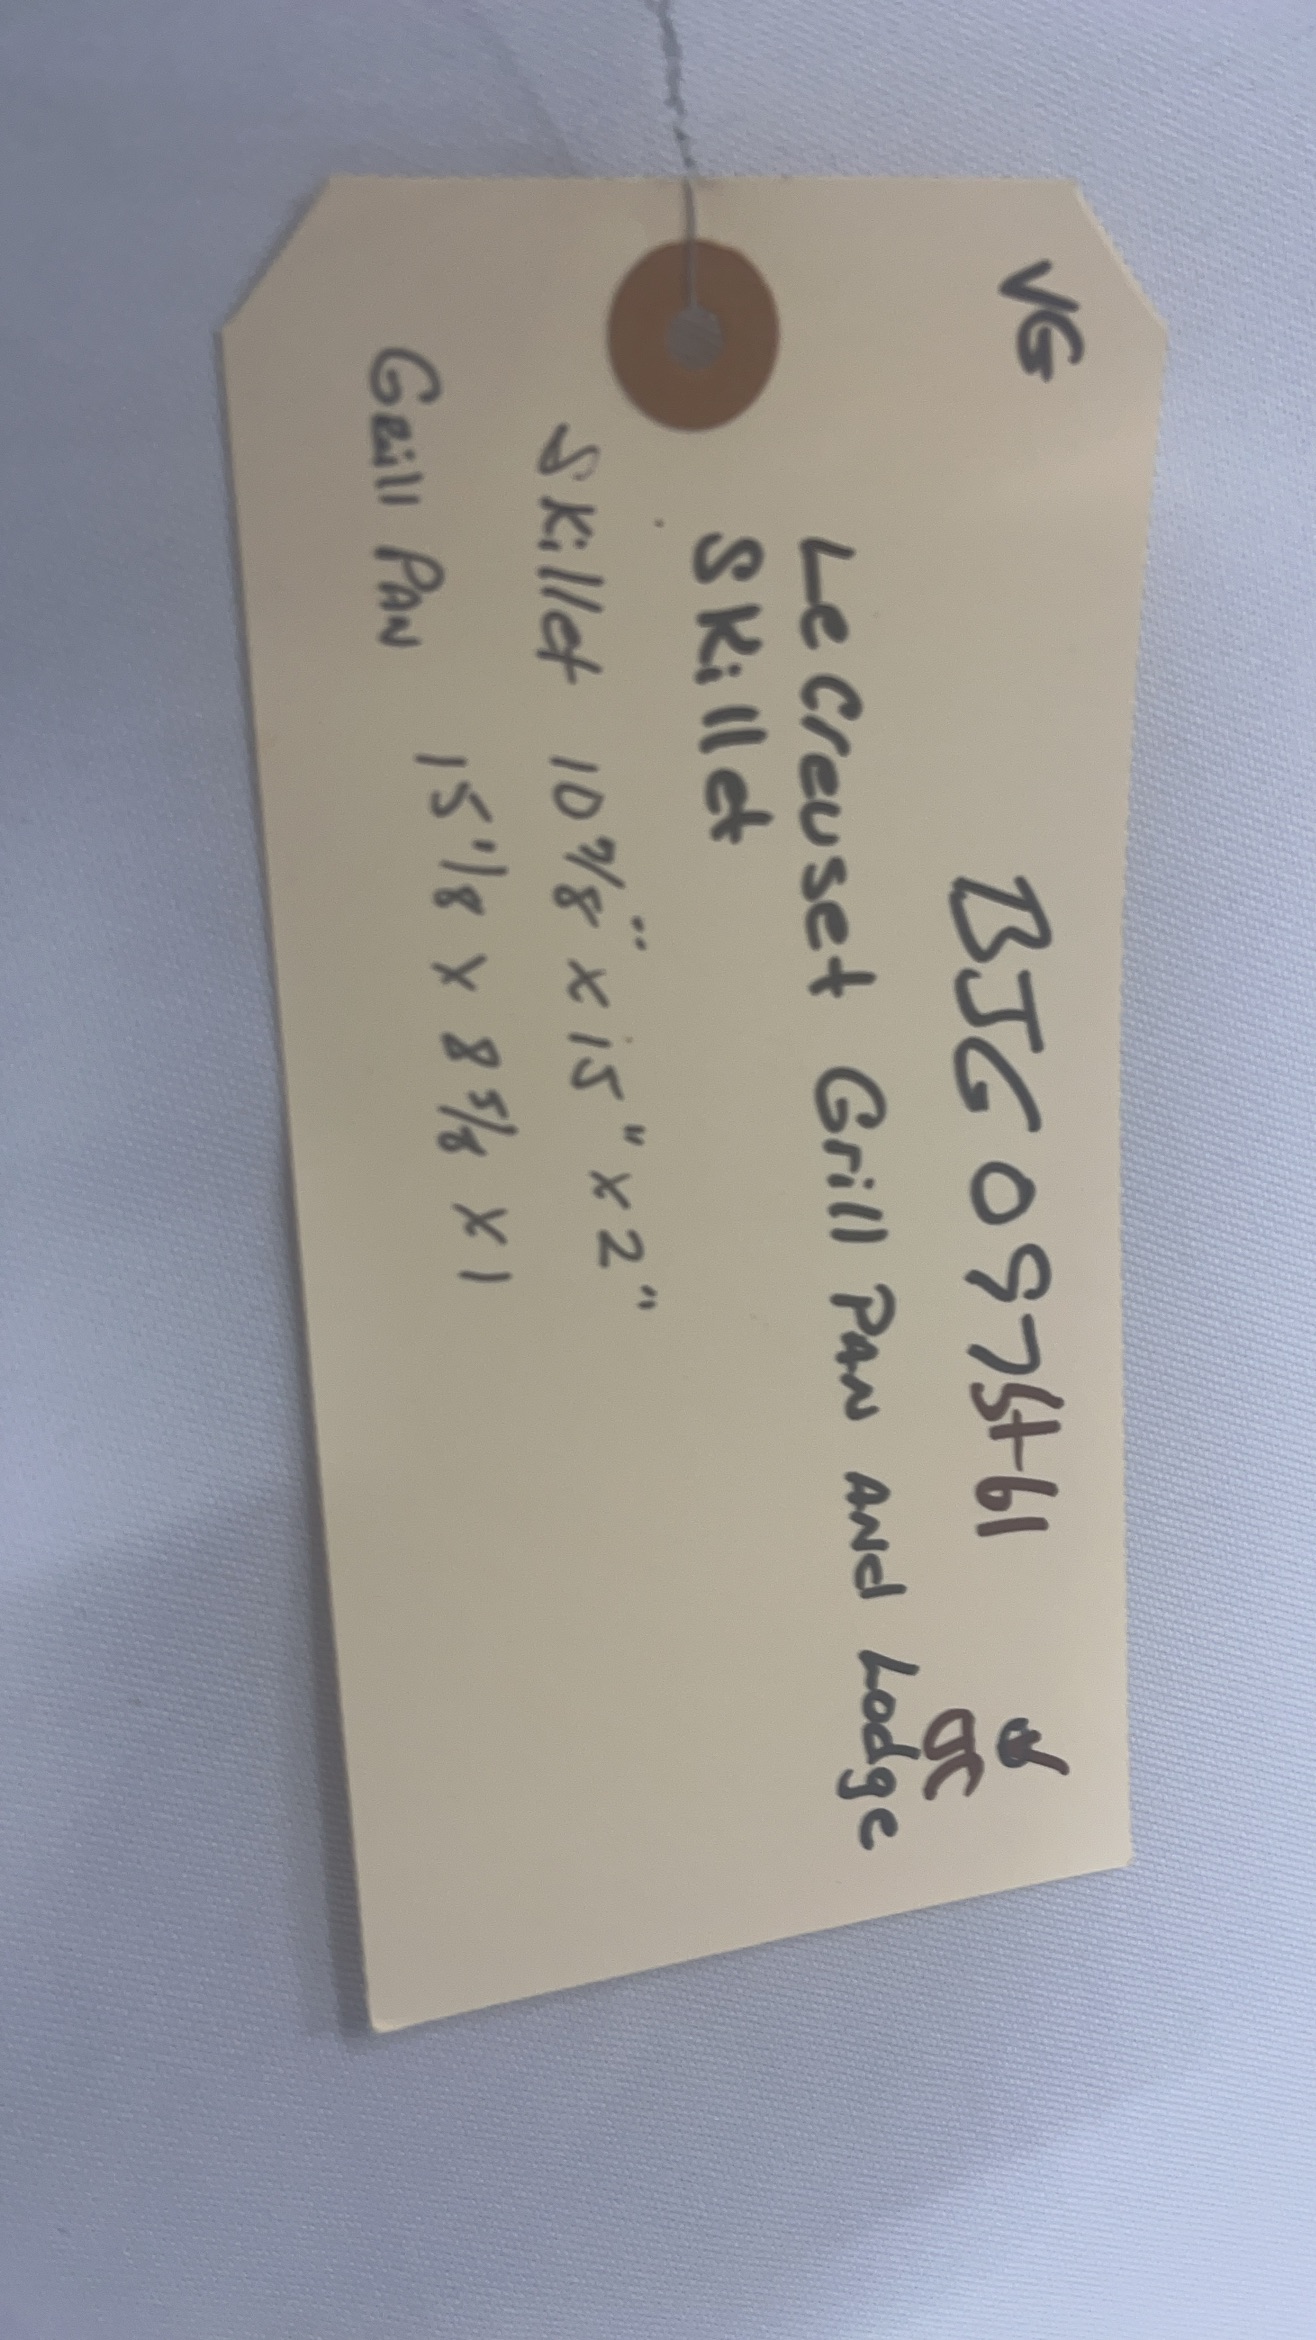 VG
BJG 0975+61
JC
Le Creuset Grill PAN AND Lodge
Skillet
Skillet 10 7/8" x 15" x 2"
Grill PAN 15 1/8 x 8 5/8 x 1